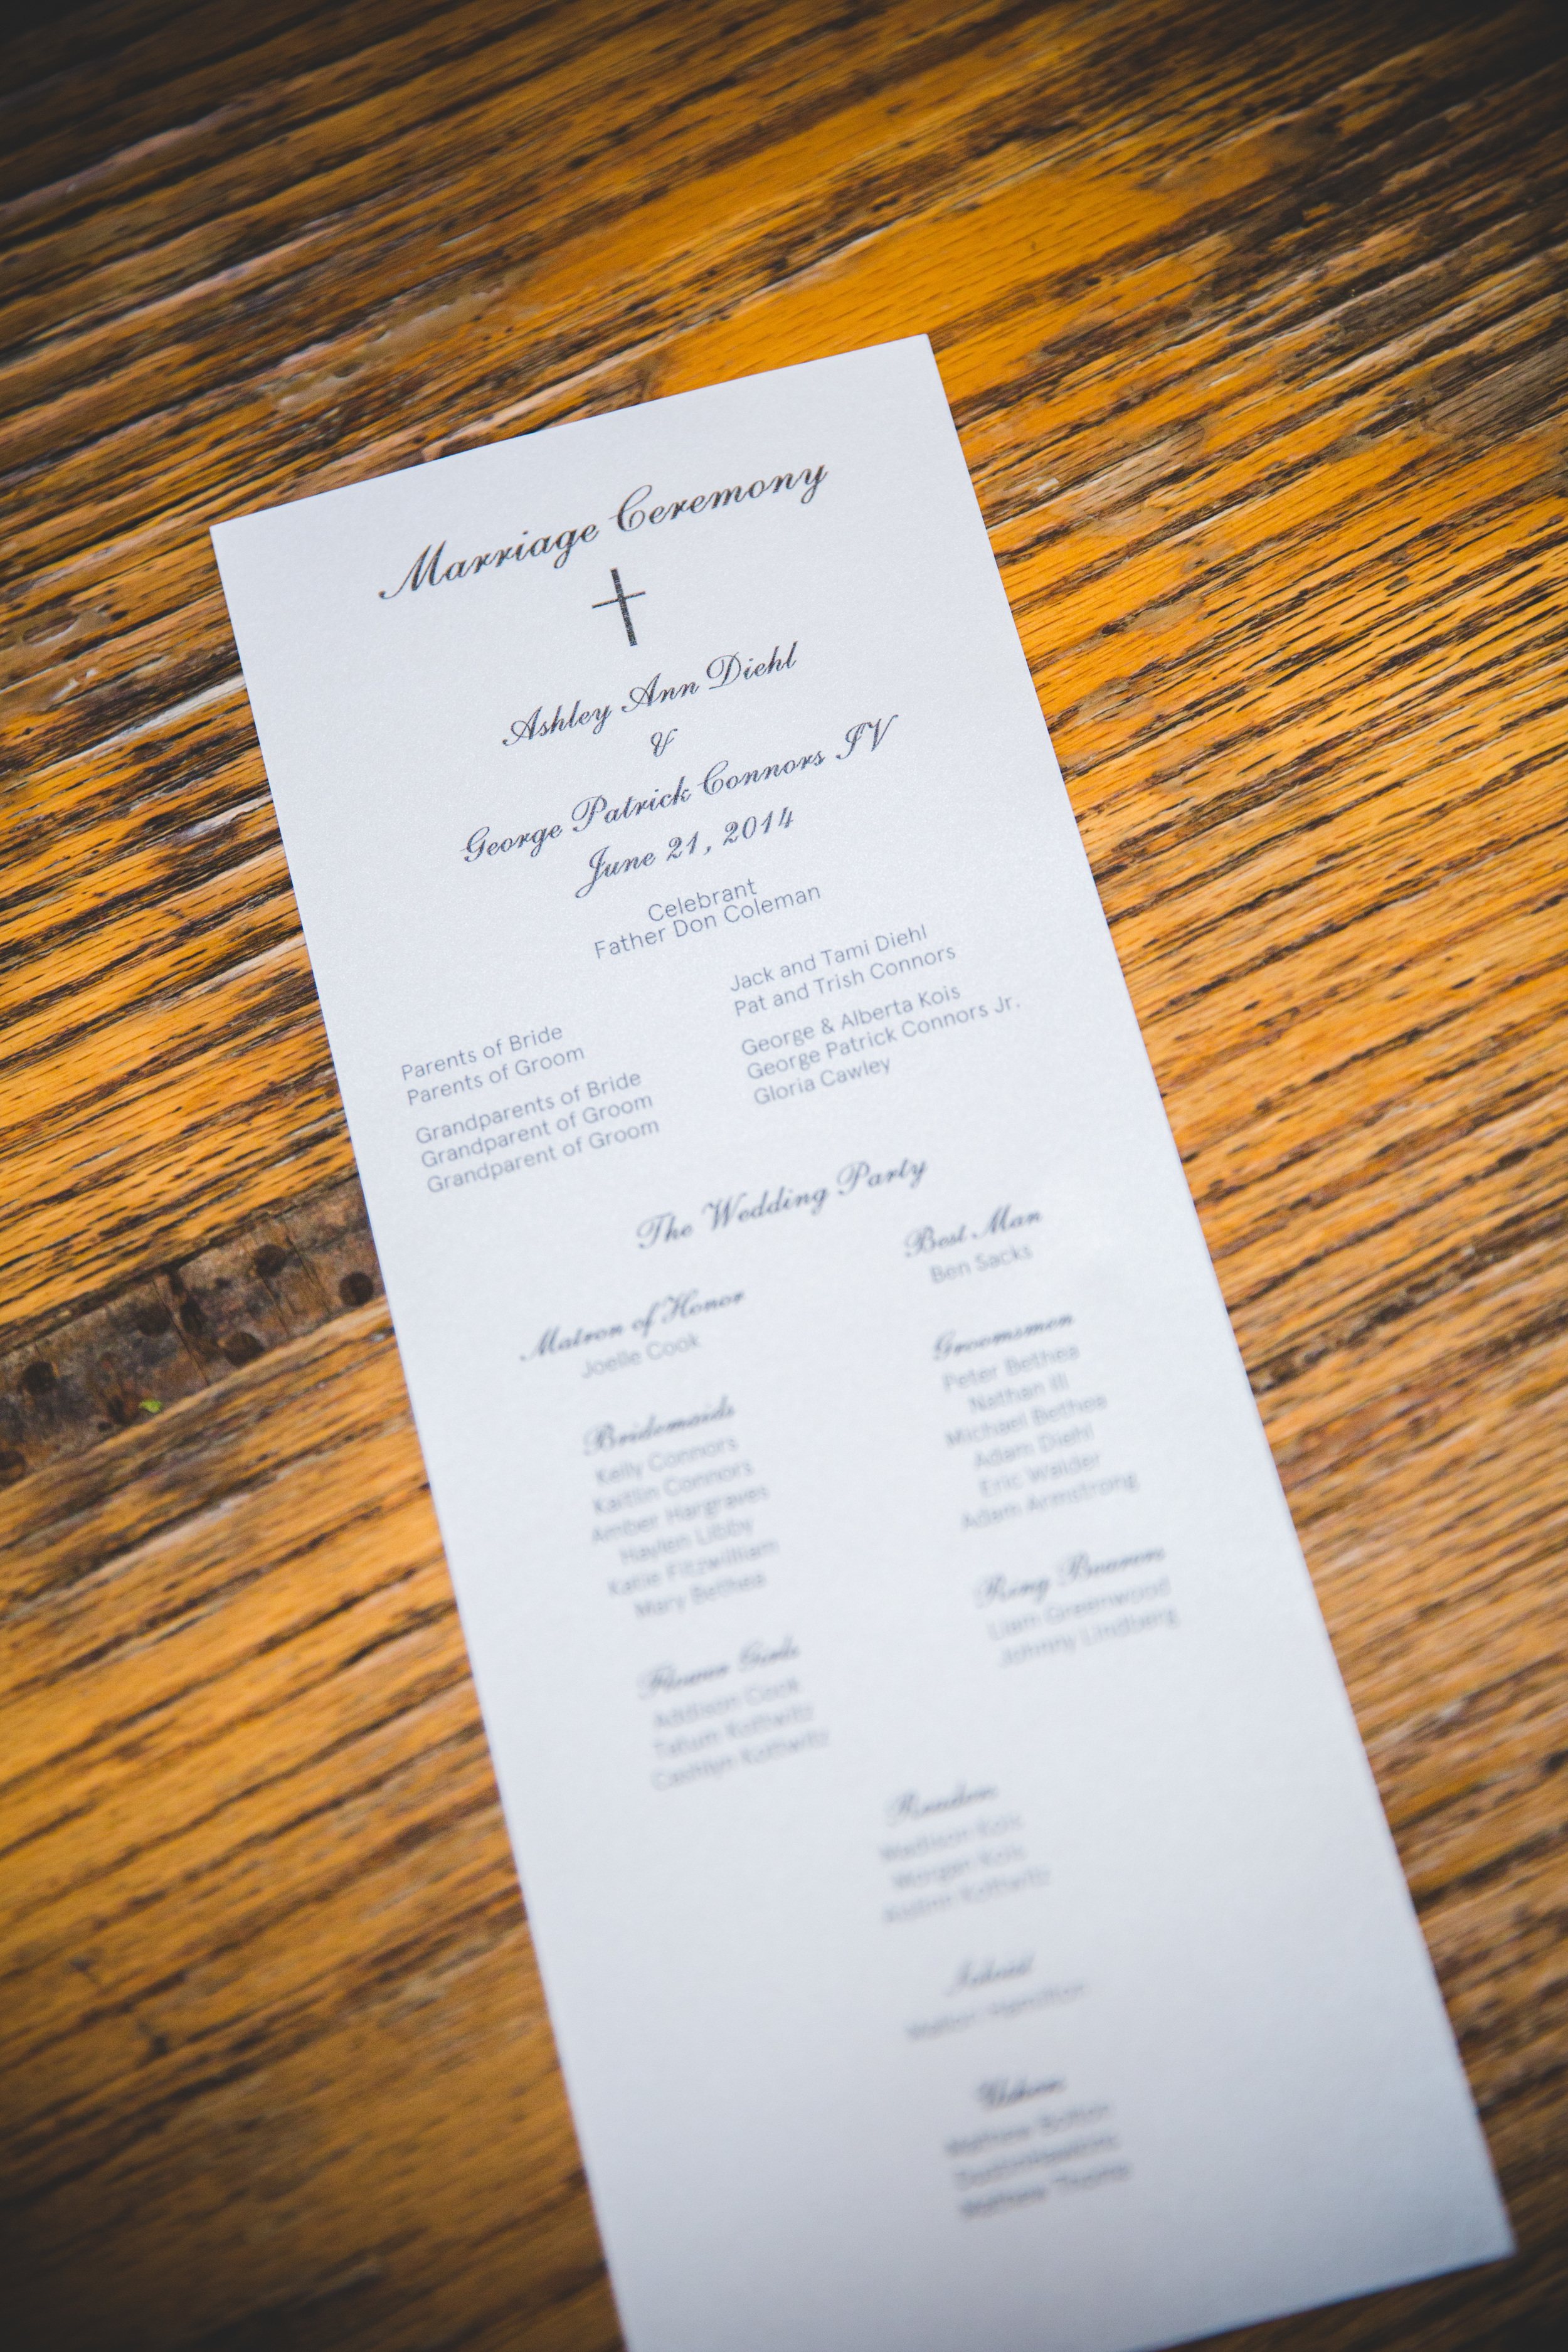 Marriage Ceremony
Ashley Ann Diehl
&
George Patrick Connors IV
June 21, 2014
Celebrant
Father Don Coleman
Parents of Bride
Jack and Tami Diehl
Parents of Groom
Pat and Trish Connors
Grandparents of Bride
George & Alberta Kois
Grandparent of Groom
George Patrick Connors Jr.
Grandparent of Groom
Gloria Cawley
The Wedding Party
Matron of Honor
Joelle Cook
Best Man
Ben Sacks
Bridemaids
Kelly Connors
Kaitlin Connors
Amber Hargraves
Haylen Libby
Katie Fitzwilliam
Mary Bethea
Groomsmen
Peter Bethea
Nathan Ill
Michael Bethea
Adam Diehl
Eric Walder
Adam Armstrong
Flower Girls
Addison Cook
Tatum Kottwitz
Kottwitz
Ring Bearers
Liam Greenwood
Johnny Lindberg
Readers
Madison Kois
Morgan Kois
Kottwitz
Hamilton
Ushers
Matthew
Matthew